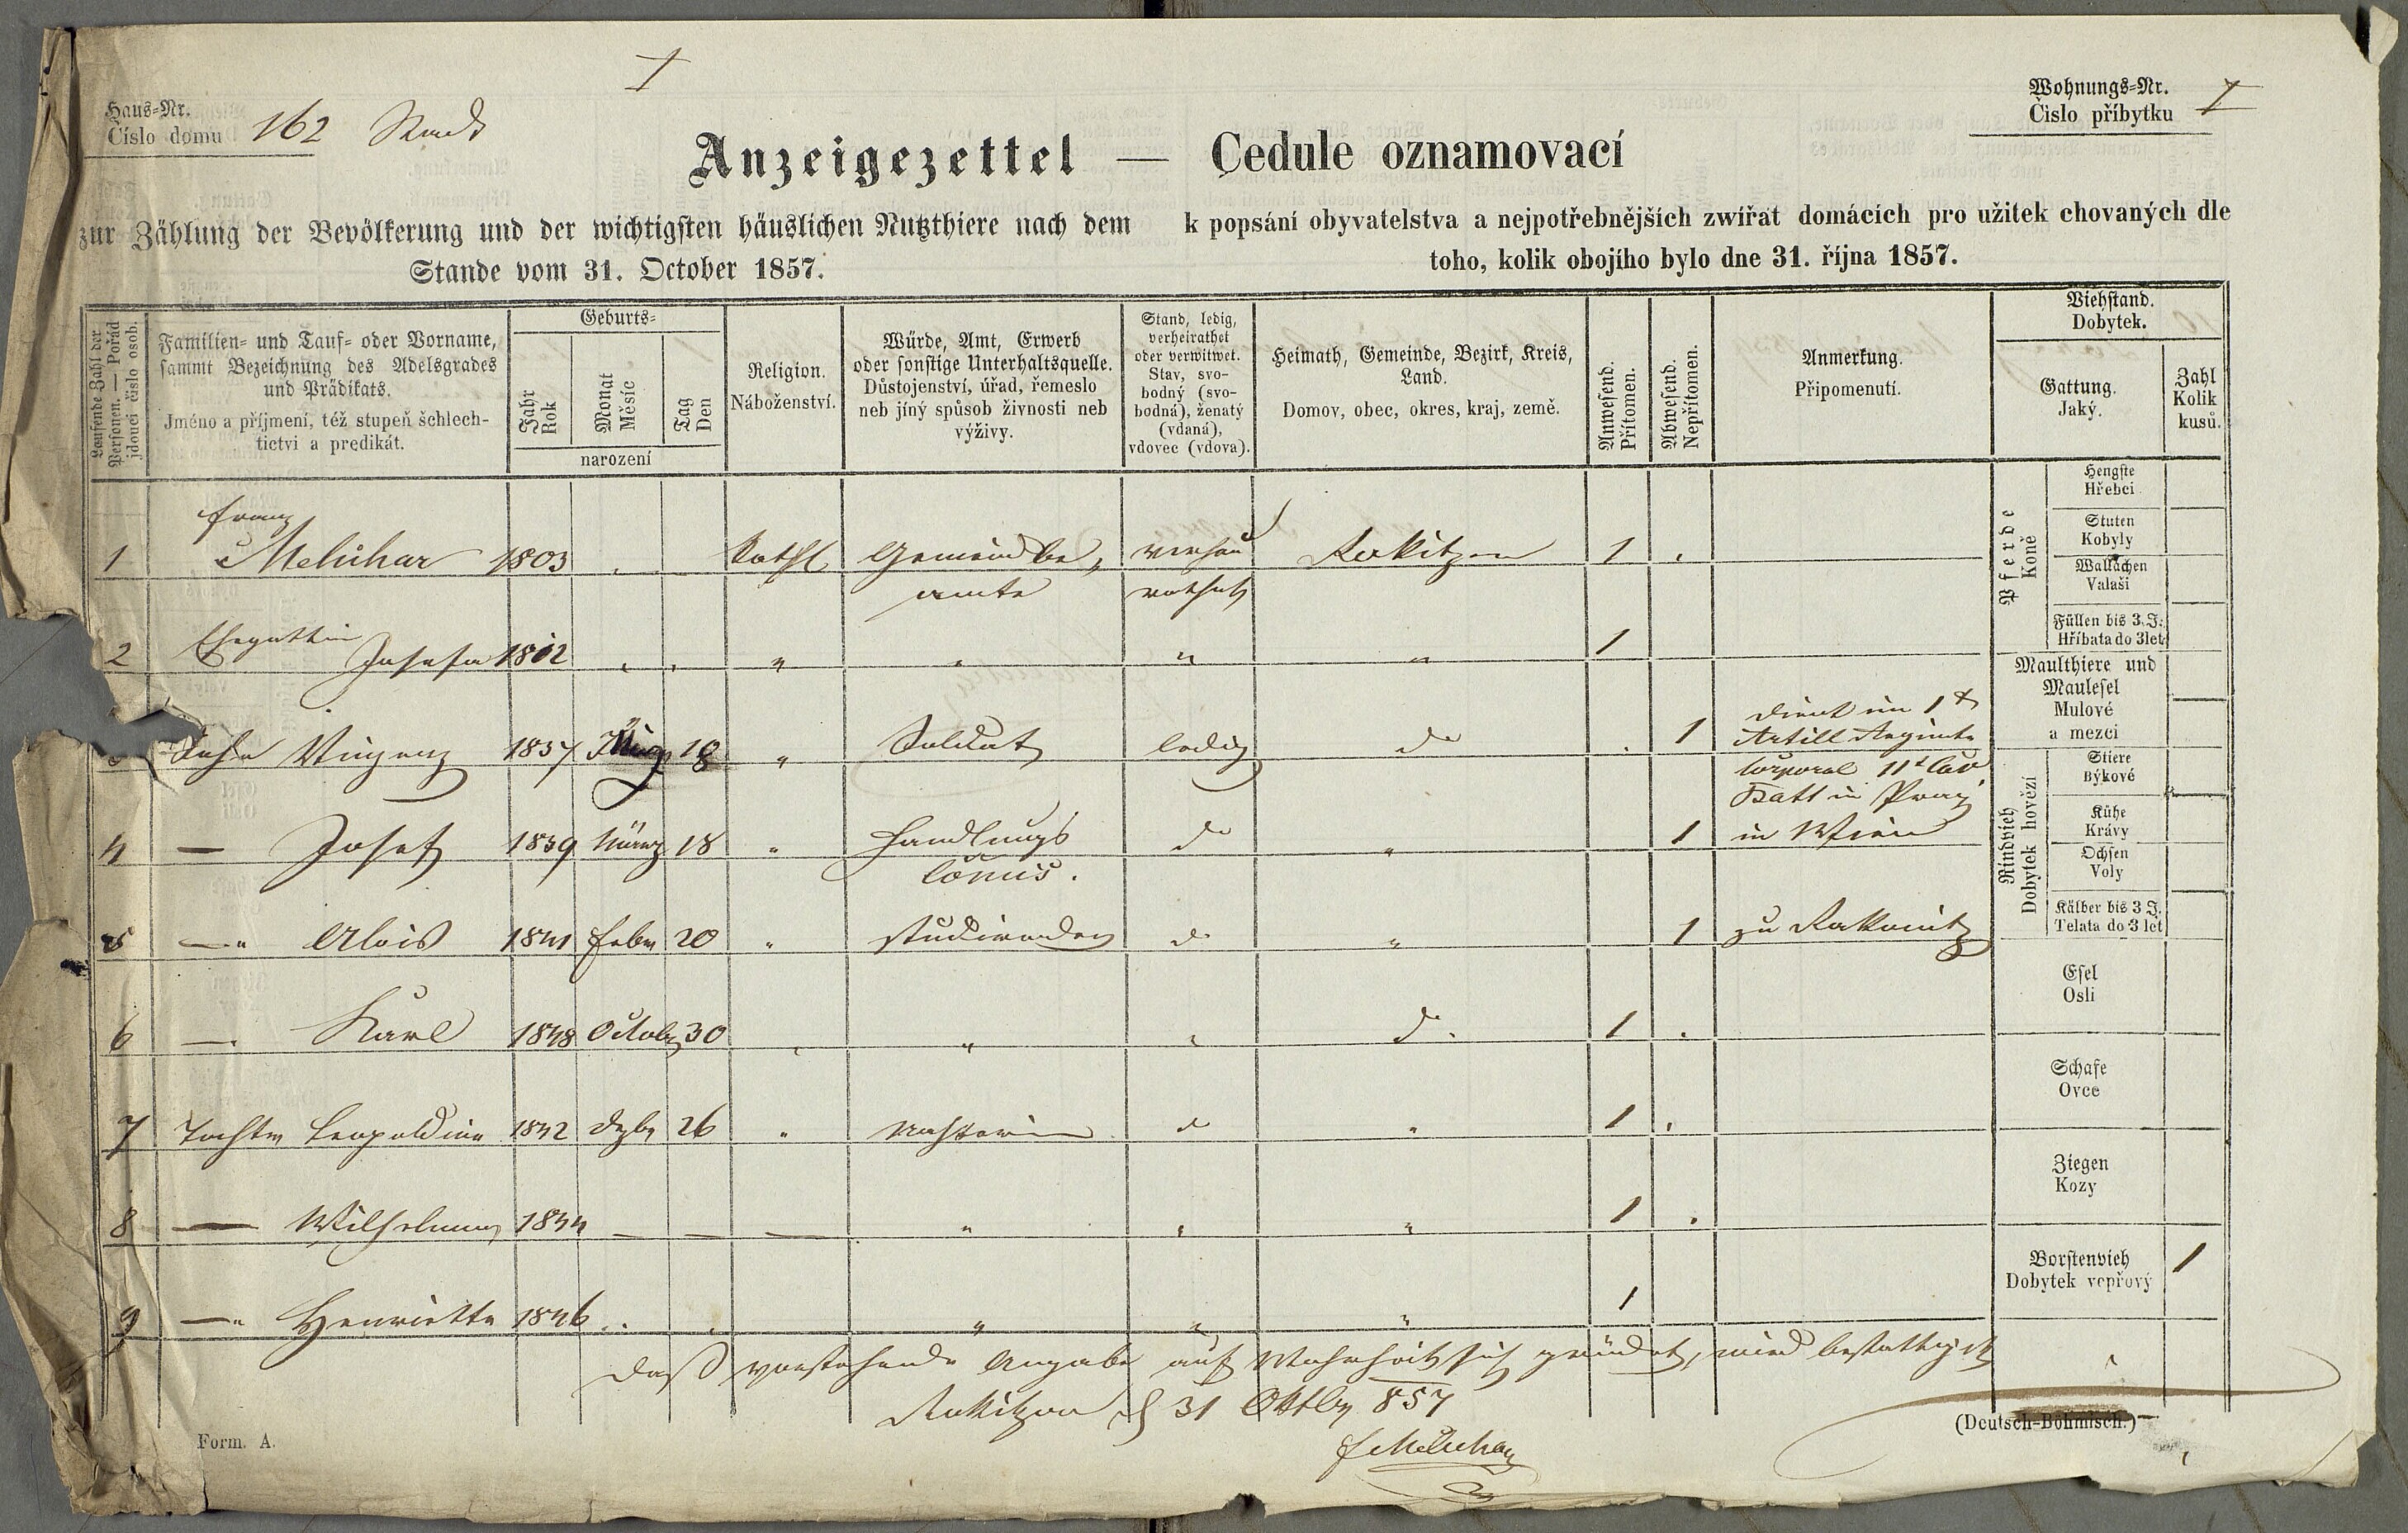 1
Haus-Nr.
Číslo domu 162 Stadt
Wohnungs-Nr.
Čislo příbytku I
Anzeigezettel — Cedule oznamovací
zur Zählung der Bevölkerung und der wichtigsten häuslichen Nutzthiere nach dem
Stande vom 31. October 1857.
k popsání obyvatelstva a nejpotřebnějších zwířat domácích pro užitek chovaných dle
toho, kolik obojího bylo dne 31. října 1857.
Laufende Zahl der Personen. — Pořád jdoucí číslo osob.
Familien- und Tauf- oder Vorname,
sammt Bezeichnung des Adelsgrades
und Prädikats.
Jméno a příjmení, též stupeň šchlech-
tictvi a predikát.
Geburts-
Jahr
Rok
Monat
Měsíc
Tag
Den
narození
Religion.
Náboženství.
Würde, Amt, Erwerb
oder sonstige Unterhaltsquelle.
Důstojenství, úřad, řemeslo
neb jíný spůsob živnosti neb
výživy.
Stand, ledig,
verheirathet
oder verwitwet.
Stav, svo-
bodný (svo-
bodná), ženatý
(vdaná),
vdovec (vdova).
Heimath, Gemeinde, Bezirk, Kreis,
Land.
Domov, obec, okres, kraj, země.
Anwesend.
Přítomen.
Abwesend.
Nepřítomen.
Anmerkung.
Připomenutí.
Viehstand.
Dobytek.
Gattung.
Jaký.
Zahl
Kolik
kusů.
1 Franz
Meluhar 1803 Kathl Gemeindbe, verhei Rokitzan 1
amte rathet
2 Ehegattin Josefa 1812 " " " " 1
Sohn Vinzenz 1837 18 " Soldat ledig do 1 dient im 1t
Artill Regimte
Corporal 11t
Batt in Prag
4 — Josef 1839 März 18 " Handlungs do " 1 in Wien
Comis.
5 —" Alois 1841 Febr 20 " studirender do " 1 zu Rakonitz
6 —. Karl 1848 Octob 30 " " do. 1
7 Tochter Leopoldine 1842 Dzbr 26 " do " 1
8 — Wilhelmine 1844 — — — " " " 1
9 —" Henriette 1846 " " " 1
Pferde
Koně
Hengste
Hřebci
Stuten
Kobyly
Wallachen
Valaši
Füllen bis 3 J.
Hříbata do 3 let
Maulthiere und
Maulesel
Mulové
a mezci
Rindvieh
Dobytek hovězí
Stiere
Býkové
Kühe
Krávy
Ochsen
Voly
Kälber bis 3 J.
Telata do 3 let
Esel
Osli
Schafe
Ovce
Ziegen
Kozy
Borstenvieh
Dobytek vepřový 1
Daß vorstehende Angabe auf Wahrheit sich gründet, wird bestättigt
Rokitzan d 31 Oktbr 857
F Meluhar
Form. A.
(Deutsch-Böhmisch.)